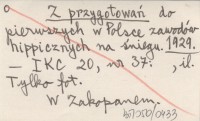 Z przygotowań do
pierwszych w Polsce zawodów
hippicznych na śniegu. 1929.
– IKC 20, nr 37: , il.
Tylko fot.
W Zakopanem.